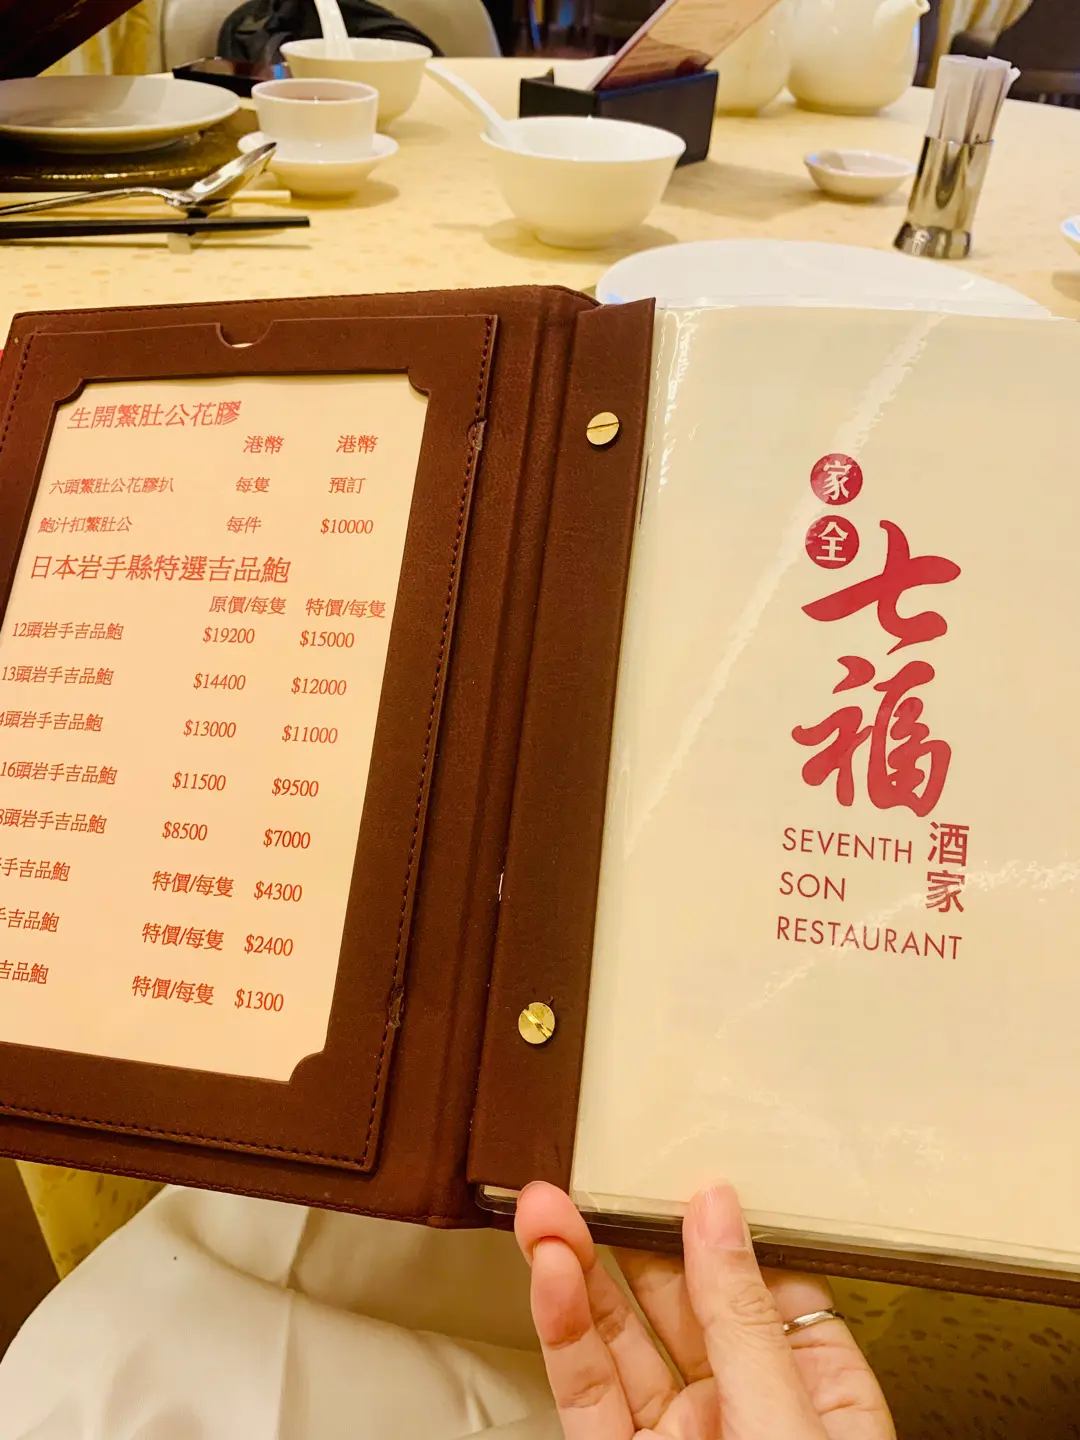 生開鰵肚公花膠
港幣 港幣
六頭鰵肚公花膠扒 每隻 預訂
鮑汁扣鰵肚公 每件 $10000
日本岩手縣特選吉品鮑
原價/每隻 特價/每隻
12頭岩手吉品鮑 $19200 $15000
13頭岩手吉品鮑 $14400 $12000
4頭岩手吉品鮑 $13000 $11000
16頭岩手吉品鮑 $11500 $9500
8頭岩手吉品鮑 $8500 $7000
手吉品鮑 特價/每隻 $4300
手吉品鮑 特價/每隻 $2400
吉品鮑 特價/每隻 $1300
家全
七福
酒家
SEVENTH
SON
RESTAURANT